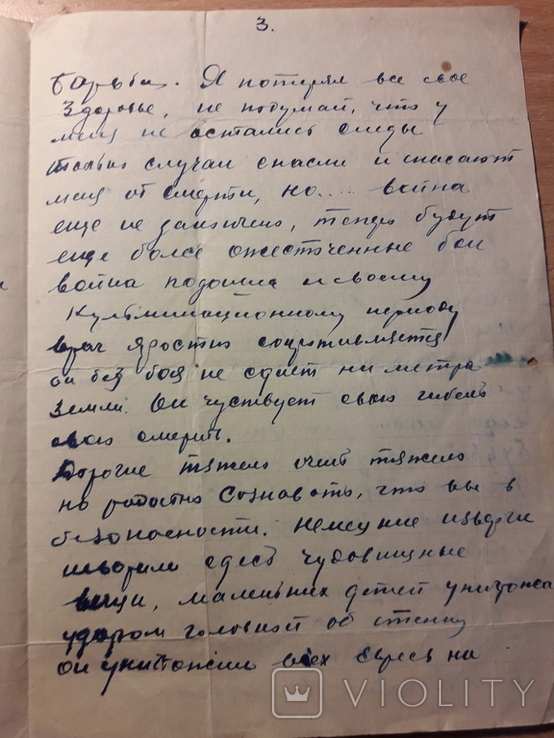 3.
борьбы. Я потерял все свое
здоровье, не подумай, что у
меня не остались следы
только случаи спасли и спасают
меня от смерти, но.... война
еще не закончено, теперь будут
еще более ожесточенные бои
война подошла к своему
Культминационному периоду
враг яростно сопротивляется
он без боя не сдает ни метра
земли. Он чуствует свою гибель
свою смерть.
Дорогие тяжело очень тяжело
но радостно сознавать, что вы в
безопасности. Немецкие изверги
творили здесь чудовищные
вещи, маленьких детей уничтожа
ударом головкой об стенку
он уничтожил всех евреев на
VIOLITY